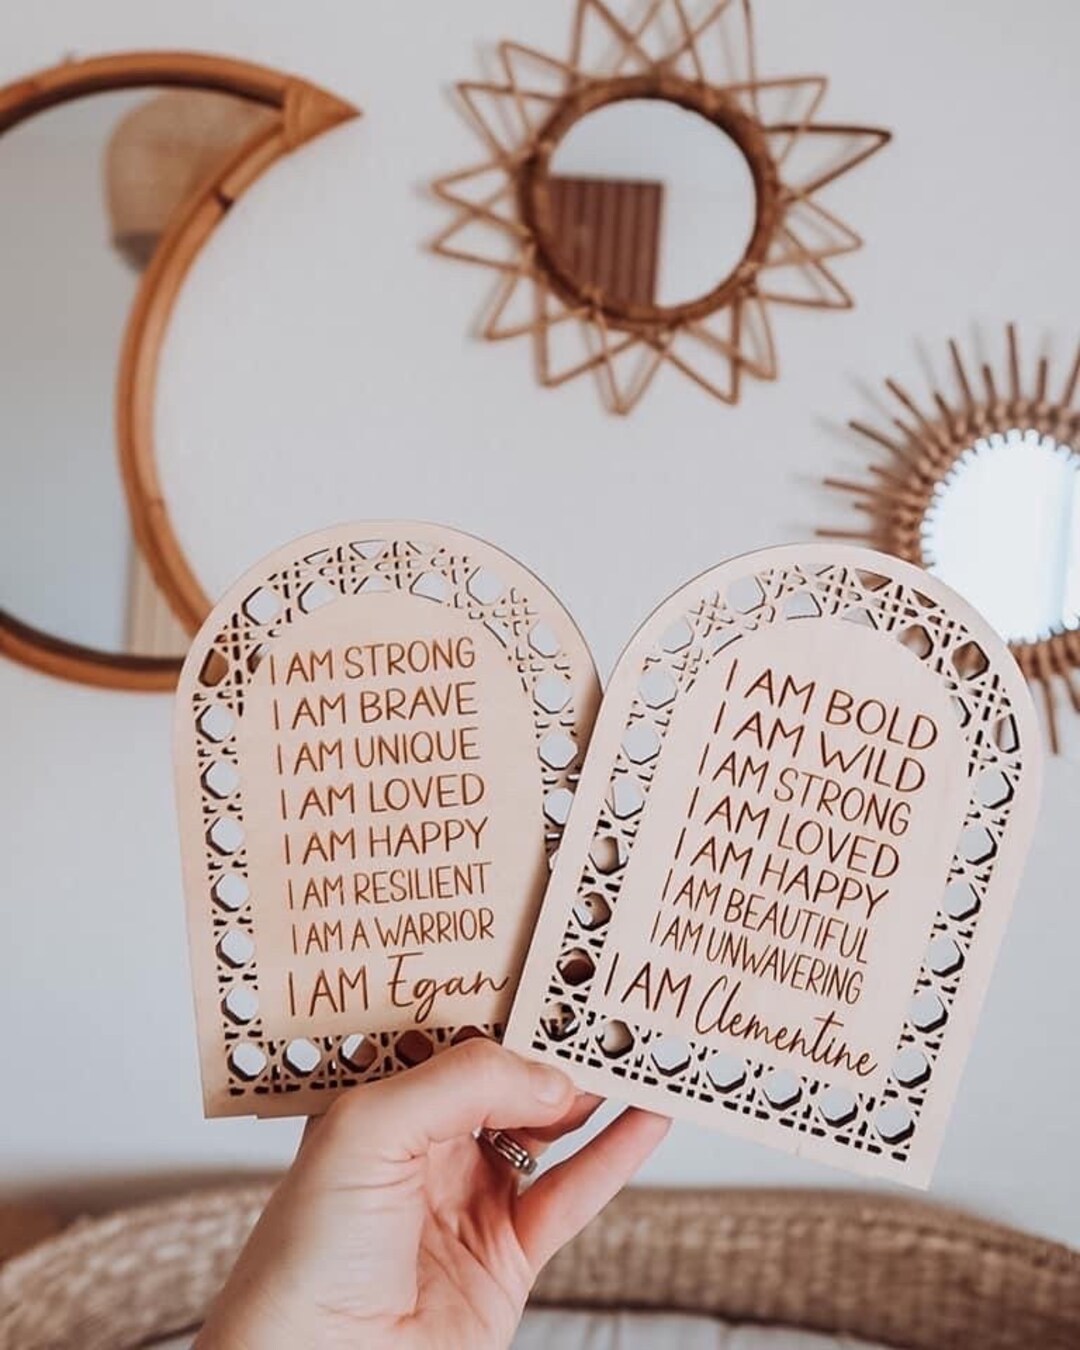 I AM STRONG
I AM BRAVE
I AM UNIQUE
I AM LOVED
I AM HAPPY
I AM RESILIENT
I AM A WARRIOR
I AM Egan
I AM BOLD
I AM WILD
I AM STRONG
I AM LOVED
I AM HAPPY
I AM BEAUTIFUL
I AM UNWAVERING
I AM Clementine